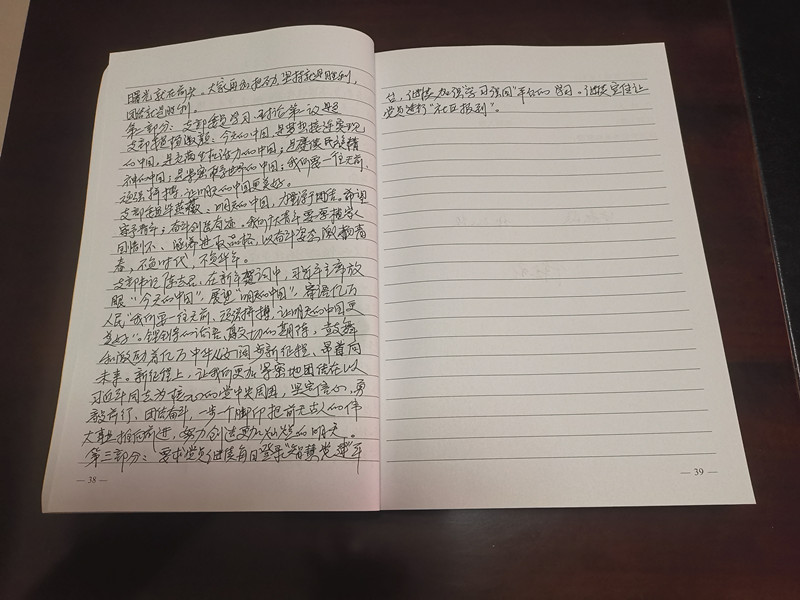 曙光就在前头。大家再加把劲,坚持就是胜利,
团结就是胜利。
第二部分:支部委员学习、讨论第一议题
支部委员:今天的中国,是梦想接连实现
的中国,是充满生机活力的中国,是赓续民族精
神的中国,是紧密联系世界的中国;我们要一往无前、
顽强拼搏,让明天的中国更美好。
支部委员:明天的中国,力量源于团结。希望
寄予青年;奋斗创造奇迹。我们广大青年要厚植家国
情怀、涵养进取品格,以奋斗姿态激扬青
春,不负时代,不负华年。
支部书记:在新年贺词中,习近平主席放
眼“今天的中国”,展望“明天的中国”,寄语亿万
人民“我们要一往无前、顽强拼搏,让明天的中国更
美好”。铿锵的话语、殷切的期待,鼓舞
和激励着亿万中华儿女阔步新征程、昂首向
未来。新征程上,让我们更加紧密地团结在以
习近平同志为核心的党中央周围,坚定信心、勇
毅前行、团结奋斗,一步一个脚印把前无古人的伟
大事业推向前进,努力创造更加灿烂的明天。
第三部分:要求党员继续每日登录“智慧党建”平
— 38 —
台,继续加强学习强国“平台的学习。继续定位让
党员进行“社区报到”。
— 39 —